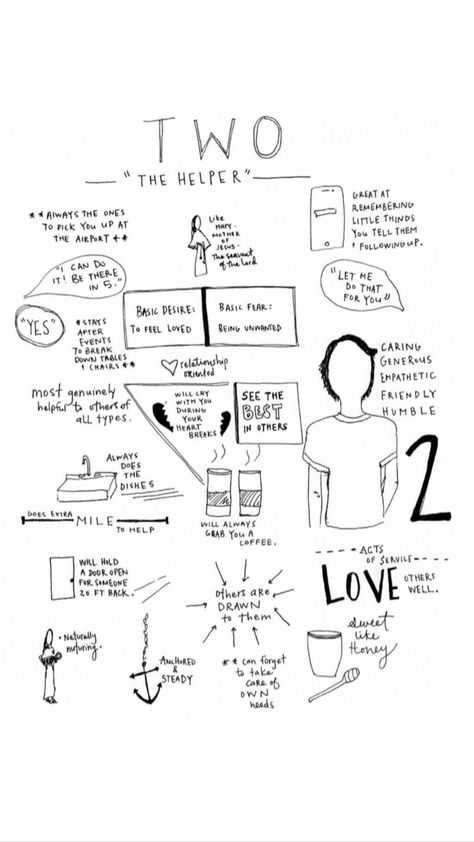 TWO
"THE HELPER"
** ALWAYS THE ONES
TO PICK YOU UP AT
THE AIRPORT **
Like
MARY.
MOTHER
OF
JESUS.
The servant
of the Lord
GREAT AT
REMEMBERING
LITTLE THINGS
YOU TELL THEM
+ FOLLOWING UP.
"I CAN DO
IT! BE THERE
IN 5."
"LET ME
DO THAT
FOR YOU"
"YES"
*STAYS
AFTER
EVENTS
TO BREAK
DOWN TABLES
+ CHAIRS **
BASIC DESIRE:
TO FEEL LOVED
BASIC FEAR:
BEING UNWANTED
relationship
oriented
CARING
GENEROUS
EMPATHETIC
FRIENDLY
HUMBLE
most genuinely
helpful to others of
all types.
WILL CRY
WITH YOU
DURING
YOUR
HEART
BREAKS
SEE THE
BEST
IN OTHERS
2
ALWAYS
DOES
THE
DISHES
GOES EXTRA
MILE
TO HELP
WILL ALWAYS
GRAB YOU A
COFFEE.
WILL HOLD
A DOOR OPEN
FOR SOMEONE
20 FT BACK.
others are
DRAWN
to them
ACTS
OF SERVICE
LOVE OTHERS
WELL.
• Naturally
nuturing.
ANCHORED
&
STEADY
** can forget
to take
care of
OWN
needs
sweet
like
Honey